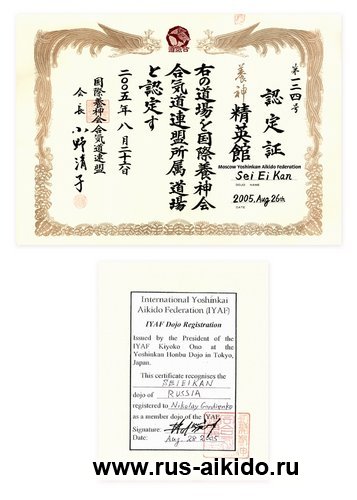 第一二四号
認定証
養神
精英館
Moscow Yoshinkan Aikido Federation
Sei Ei Kan
DOJO NAME
2005, Aug 26th
DATE
右の道場を国際養神会
合気道連盟所属道場
と認定す
二〇〇五年八月二十六日
国際養神会合気道連盟
会長 小野清子
International Yoshinkai
Aikido Federation (IYAF)
IYAF Dojo Registration
Issued by the President of the
IYAF Kiyoko Ono at the
Yoshinkan Honbu Dojo in Tokyo,
Japan.
This certificate recognises the
SEIEIKAN
dojo of RUSSIA
registered to Nikolay Gordienko
as a member dojo of the IYAF
Signature:
Date: Aug 28 2005
www.rus-aikido.ru